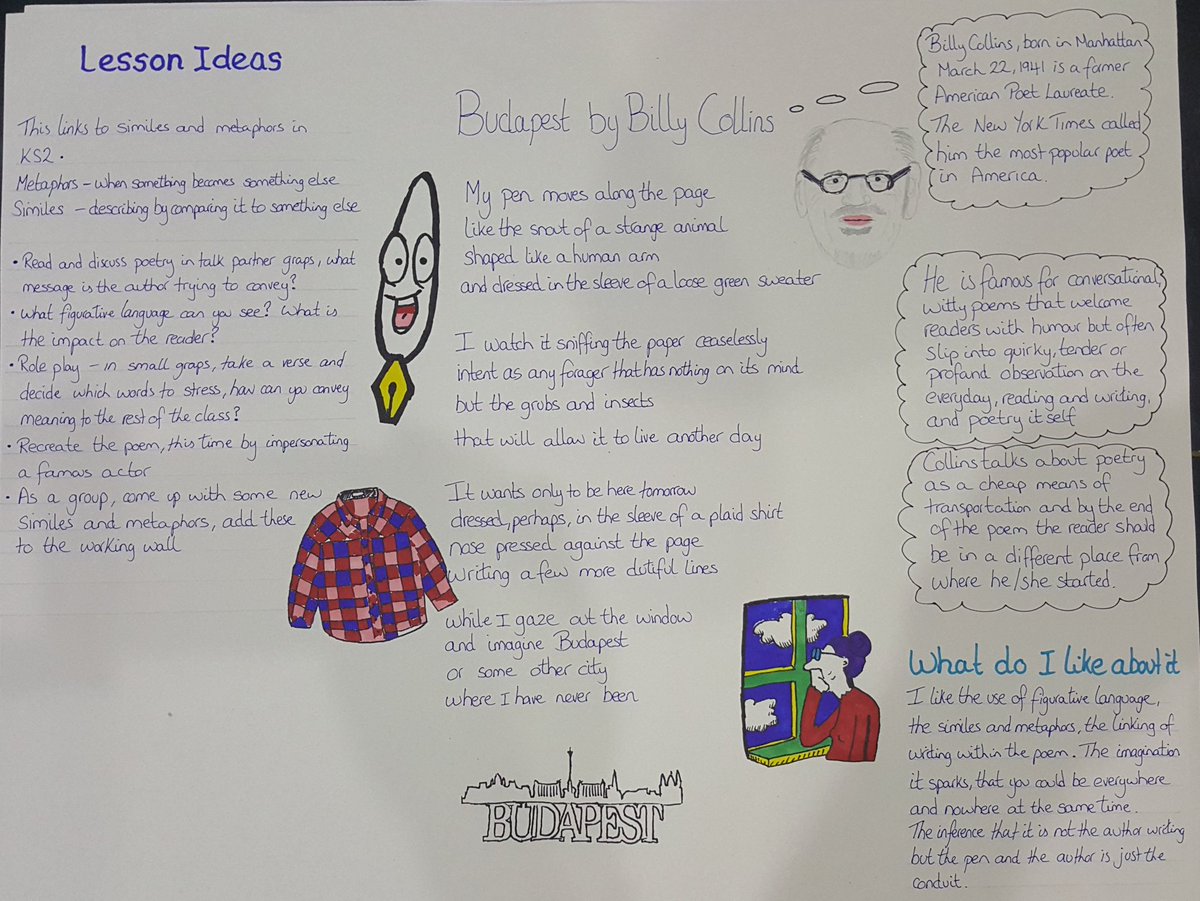 Lesson Ideas
This links to similes and metaphors in
KS2.
Metaphors – when something becomes something else
Similes – describing by comparing it to something else
• Read and discuss poetry in talk partner graps, what
message is the author trying to convey?
• what figurative language can you see? What is
the impact on the reader?
• Role play – in small graps, take a verse and
decide which words to stress, how can you convey
meaning to the rest of the class?
• Recreate the poem, this time by impersonating
a famous actor
• As a group, come up with some new
Similes and metaphors, add these
to the working wall
Budapest by Billy Collins
My pen moves along the page
like the snout of a strange animal
shaped like a human arm
and dressed in the sleeve of a loose green sweater
I watch it sniffing the paper ceaselessly
intent as any forager that has nothing on its mind
but the grubs and insects
that will allow it to live another day
It wants only to be here tomorrow
dressed, perhaps, in the sleeve of a plaid shirt
nose pressed against the page
writing a few more dutiful lines
while I gaze out the window
and imagine Budapest
or some other city
where I have never been
BUDAPEST
Billy Collins, born in Manhattan
March 22, 1941 is a former
American Poet Laureate.
The New York Times called
him the most popular poet
in America.
He is famous for conversational,
witty poems that welcome
readers with humour but often
slip into quirky, tender or
profound observation on the
everyday, reading and writing,
and poetry itself
Collins talks about poetry
as a cheap means of
transportation and by the end
of the poem the reader should
be in a different place from
where he/she started.
What do I like about it
I like the use of figurative language,
the similes and metaphors, the linking of
writing within the poem. The imagination
it sparks, that you could be everywhere
and nowhere at the same time.
The inference that it is not the author writing
but the pen and the author is just the
conduit.